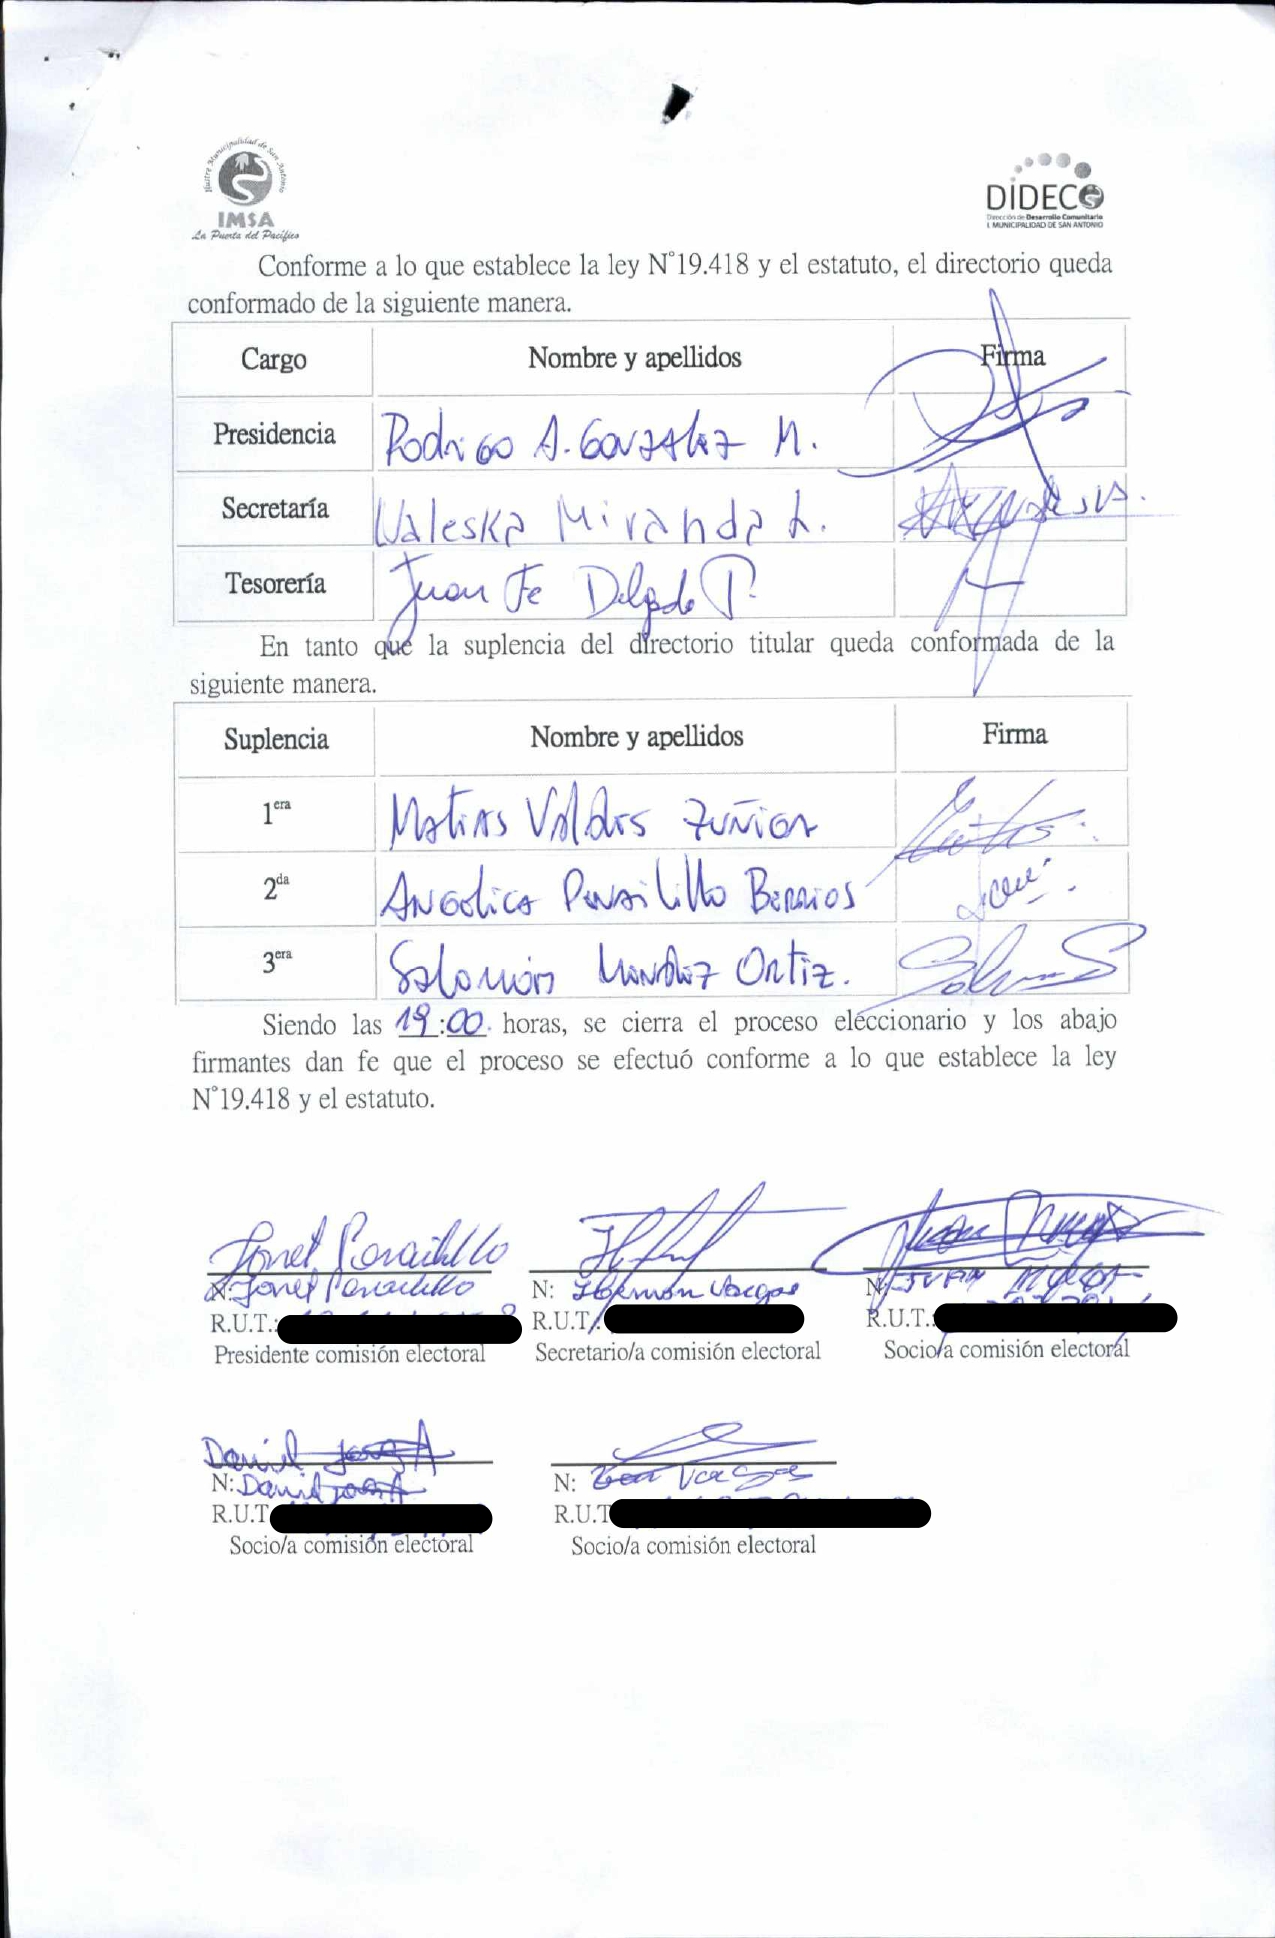 Ilustre Municipalidad de San Antonio
IMSA
La Puerta del Pacífico
DIDECO
Dirección de Desarrollo Comunitario
I. MUNICIPALIDAD DE SAN ANTONIO
Conforme a lo que establece la ley N°19.418 y el estatuto, el directorio queda
conformado de la siguiente manera.
Cargo Nombre y apellidos Firma
Presidencia Rodrigo A. González M.
Secretaría Valeska Miranda L.
Tesorería Juan Fe Delgado P.
En tanto que la suplencia del directorio titular queda conformada de la
siguiente manera.
Suplencia Nombre y apellidos Firma
1era Matias Valdes Zuñiga
2da Angelica Pansilillo Berrios
3era Salomón Mendez Ortiz.
Siendo las 19:00 horas, se cierra el proceso eleccionario y los abajo
firmantes dan fe que el proceso se efectuó conforme a lo que establece la ley
N°19.418 y el estatuto.
N: Jonet N: Vargas N: Juan
R.U.T.: R.U.T.: R.U.T.:
Presidente comisión electoral Secretario/a comisión electoral Socio/a comisión electoral
Daniel
N: Daniel N: Vargas
R.U.T R.U.T
Socio/a comisión electoral Socio/a comisión electoral